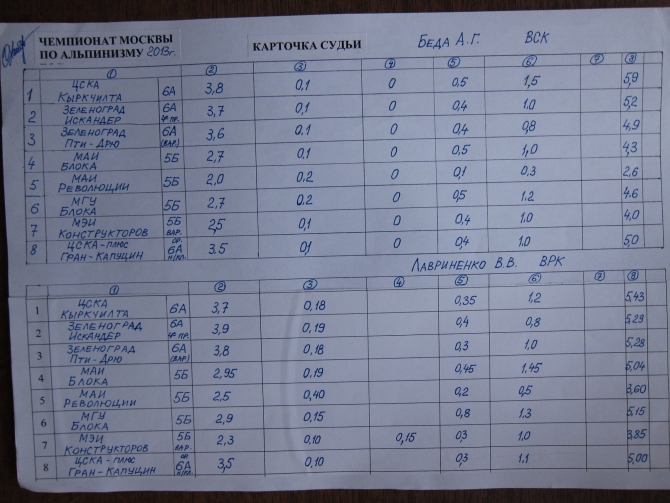 ЧЕМПИОНАТ МОСКВЫ КАРТОЧКА СУДЬИ БЕДА А.Г. ВСК
ПО АЛЬПИНИЗМУ 2013г.
① ② ③ ④ ⑤ ⑥ ⑦ ⑧
1 ЦСКА КЫРКЧИЛТА 6А 3,8 0,1 0 0,5 1,5 5,9
2 ЗЕЛЕНОГРАД ИСКАНДЕР 6А 3,7 0,1 0 0,4 1.0 5,2
3 ЗЕЛЕНОГРАД ПТИ-ДРЮ 6А (ВАР.) 3,6 0.1 0 0,4 0,8 4,9
4 МАИ БЛОКА 5Б 2,7 0,1 0 0,5 1,0 4,3
5 МАИ РЕВОЛЮЦИИ 5Б 2,0 0.2 0 0,1 0.3 2,6
6 МГУ БЛОКА 5Б 2,7 0.2 0 0,5 1.2 4.6
7 МЭИ КОНСТРУКТОРОВ 5Б ВАР. 2,5 0,1 0 0,4 1.0 4,0
8 ЦСКА-ПЛЮС ГРАН-КАПУЦИН 6А 3.5 0,1 0 0,4 1.0 5,0
ЛАВРИНЕНКО В.В. ВРК
① ② ③ ④ ⑤ ⑥ ⑦ ⑧
1 ЦСКА КЫРКЧИЛТА 6А 3,7 0,18 0,35 1.2 5,43
2 ЗЕЛЕНОГРАД ИСКАНДЕР 6А 3,9 0,19 0,4 0,8 5,29
3 ЗЕЛЕНОГРАД ПТИ-ДРЮ 6А (ВАР) 3,8 0,18 0,3 1.0 5,28
4 МАИ БЛОКА 5Б 2,95 0,19 0,45 1.45 5,04
5 МАИ РЕВОЛЮЦИИ 5Б 2,5 0,40 0,2 0,5 3,60
6 МГУ БЛОКА 5Б 2,9 0,15 0,8 1.3 5,15
7 МЭИ КОНСТРУКТОРОВ 5Б ВАР. 2,3 0,10 0,15 0,3 1.0 3,85
8 ЦСКА-ПЛЮС ГРАН-КАПУЦИН 6А 3,5 0,10 0,3 1.1 5,00